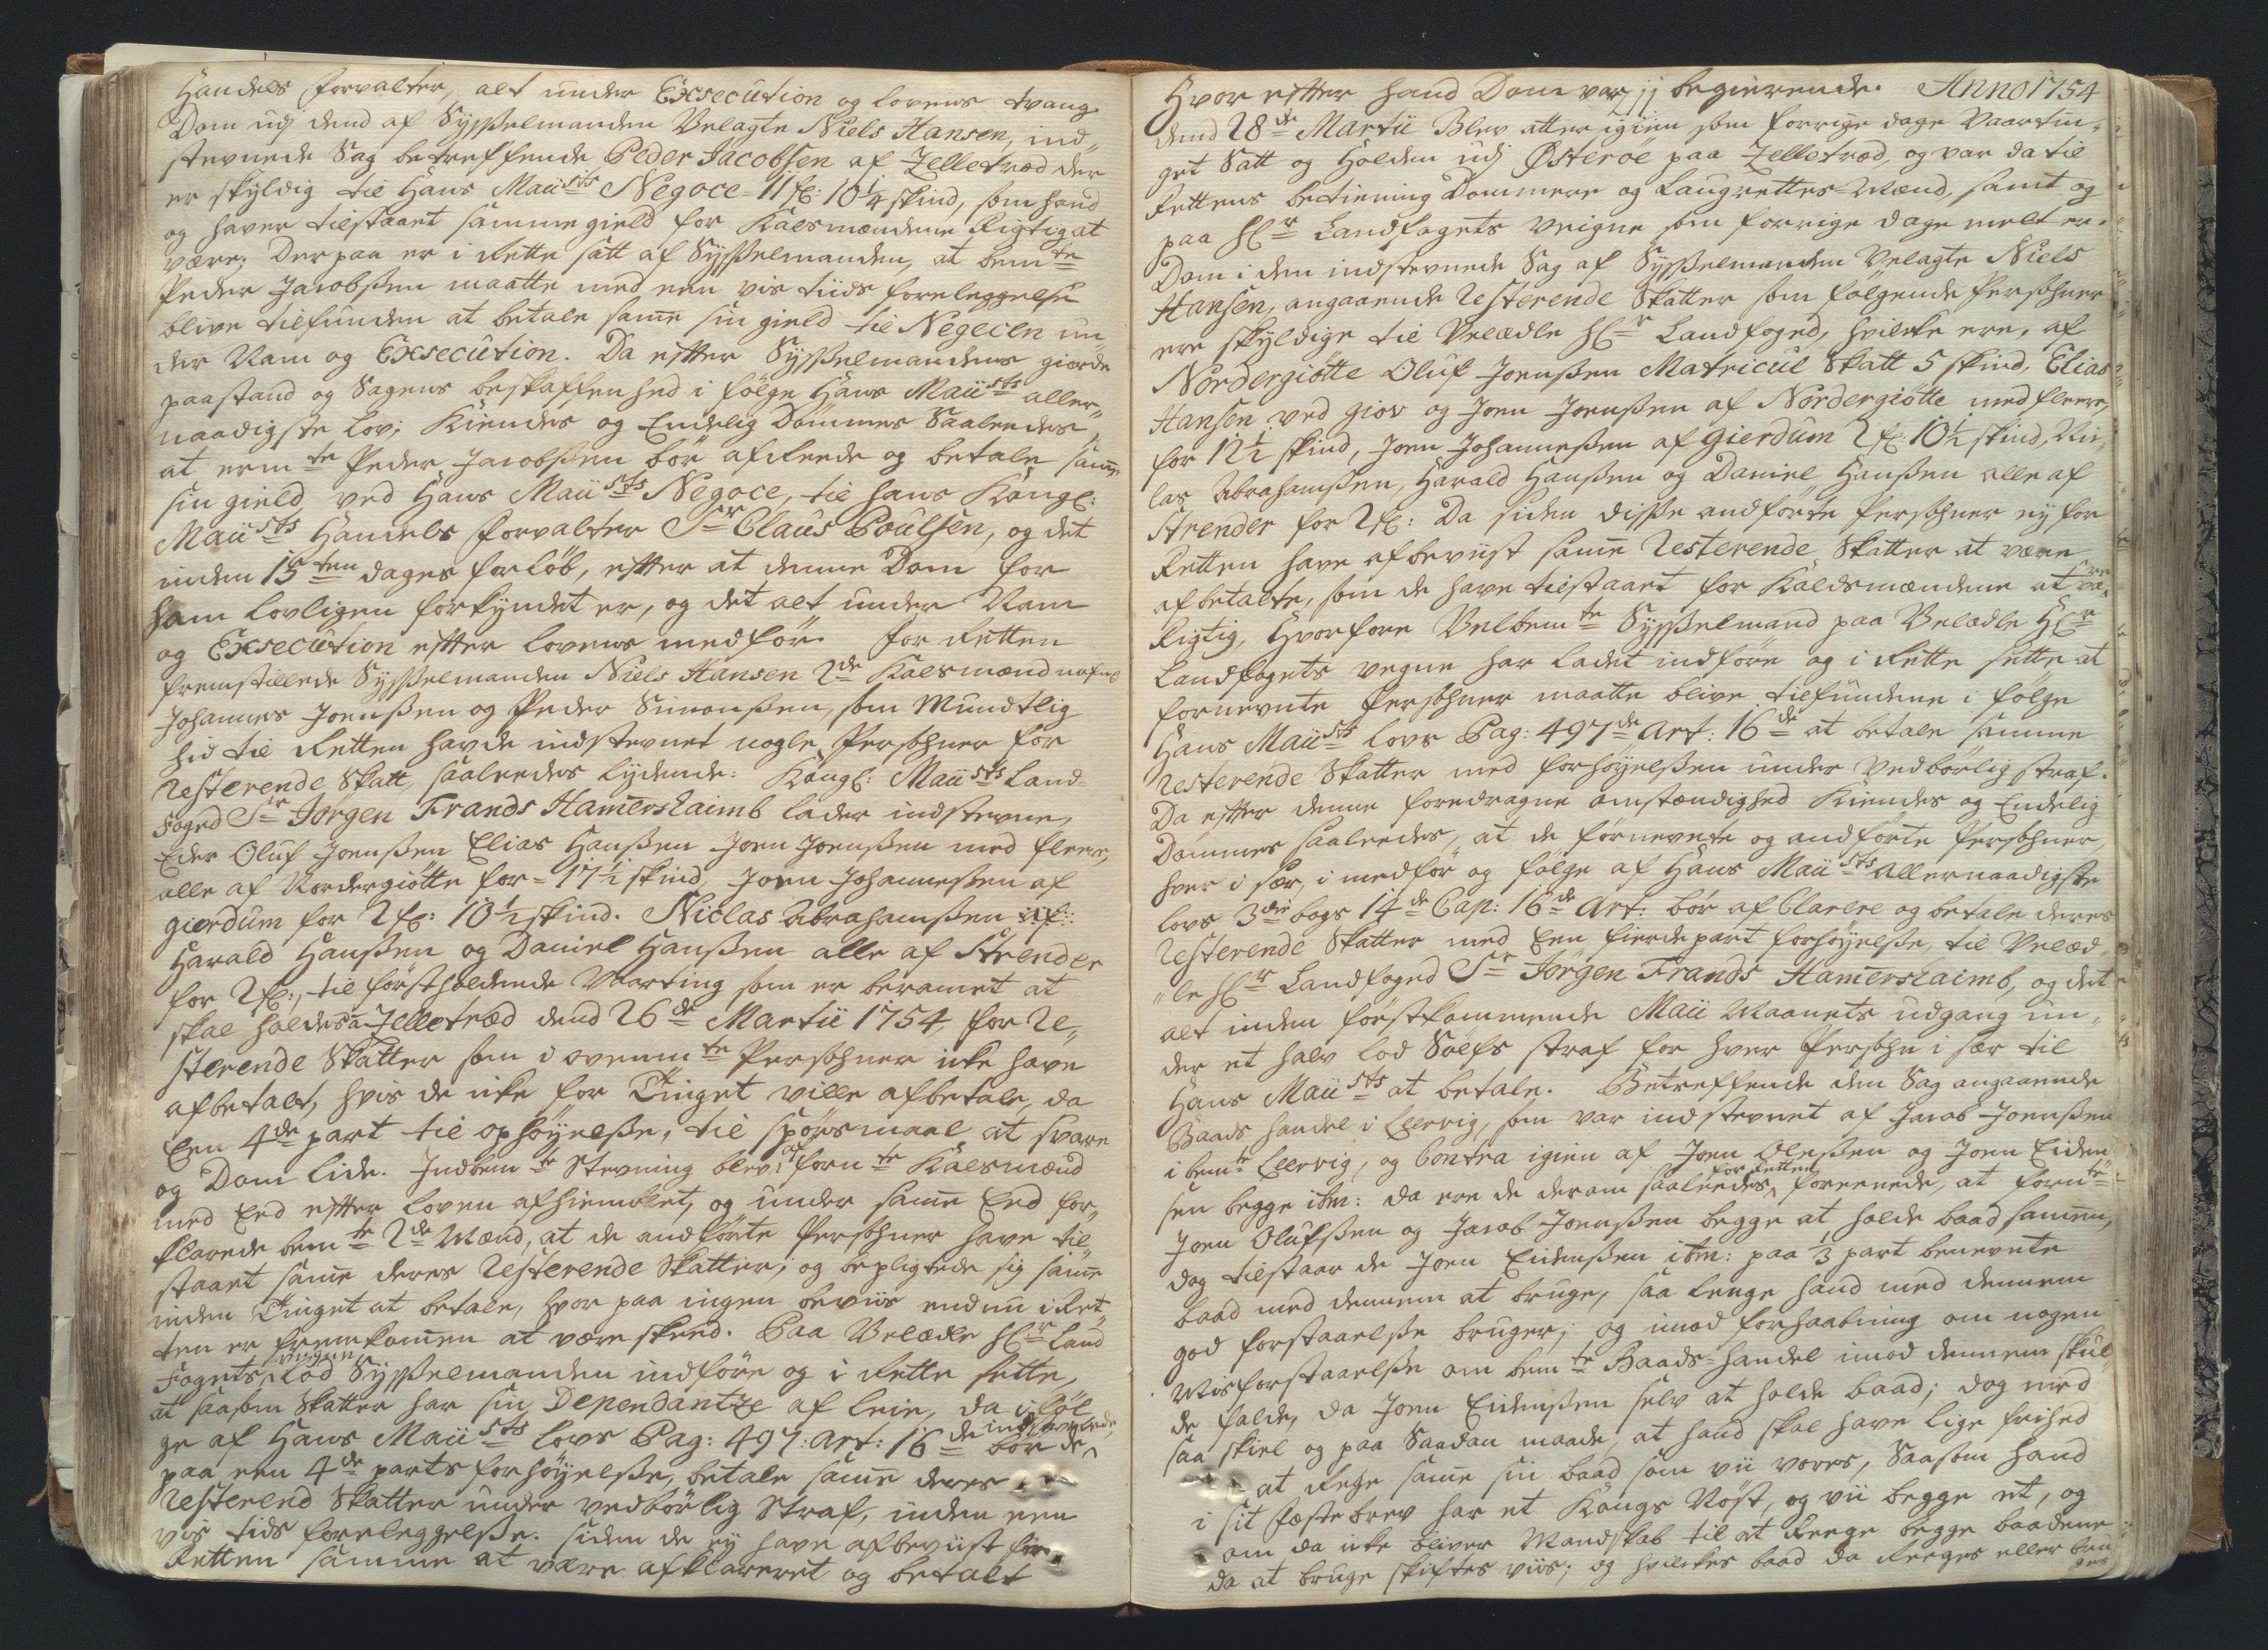 Handels forvalter, alt under Execution og lovens tvang.
Dom udj dend af Sysselmanden Velagte Niels Hansen, ind„
stevnede Sag betreffende Peder Jacobsen af Zelletræd der
er skyldig til Hans Maiists Negoce = 11 fl: 10 1/4 skind, som hand
og haver tilstaaet samme gield for Kaldsmændene Rigtig at
være; Der paa er i Rette satt af Sysselmanden, at bemte
Peder Jacobsen maatte med een vis tiids foreleggelse
blive tilfunden at betale same sin gield til Negecen un„
der Nam og Execution. Da efter Sysselmandens giorde
paastand og Sagens beskaffenhed i følge Hans Maiists aller„
naadigste lov; Kiendes og Endelig Dømmes Saaledes,
at ermte Peder Jacobsen bør afklarede og betale same
sin gield ved Hans Maiists Negoce, til hans Kongl:
Maiists Handels forvalter Sr Claus Poulsen, og det
inden 15ten dages forløb, efter at denne Dom for
ham lovligen forkyndet er, og det alt under Nam
og Execution efter lovens medfør. for Retten
fremstillede Sysselmanden Niels Hansen 2de Kalsmænd nafnl:
Johannes Joensen og Peder Simonsen, som Mundtlig
hid til Retten havde indstevnet nogle Persohner for
Resterende Skatt, saaledes lydende: Kongl: Maiists Land=
foged Sr Jørgen Frands Hamershaimb lader indstevne,
Eder Oluf Joensen Elias Hansen Joen Joensen med flere,
alle af Nordergiøtte for = 17 1/2 skind, Joen Johannesen af
gierdum for 2 fl: 10 1/2 skind. Niclas Abrahamsen af:
Harald Hansen og Daniel Hansen alle af Strender
for 2 fl:, til førstholdende Vaarting som er beramet at
skal holdes a Zelletræd dend 26de Martii 1754, for Re„
sterende Skatter som i ovenmte Persohner icke have
afbetalt, hvis de icke for Tinget ville afbetale, da
Een 4de part til ophøyelse, til spørsmaal at svare
og Dom lide. Indbemte Stevning blev af fornte Kalsmænd
med Eed efter loven afhiemblet, og under same Eed for„
klarede bemte 2de Mænd, at de andførte Persohner have til„
staaet same deres Resterende Skatter; og bepligtede sig same
inden Tinget at betale, hvor paa ingen beviis endnu i Ret„
ten er fremkomen at være skeed. Paa Velædle Hr Land
fogets veigne lod Sysselmanden indføre og i Rette sette,
at saasom Skatter har sin Dependantze af leie, da i føl„
ge af Hans Maiists lovs Pag: 497. Art: 16de bør de indstevnede,
paa een 4de parts forhøyelse, betale same deres
Resterend Skatter under vedbørlig Straf, inden een
vis tids foreleggelse. siden de ey have afbeviist for
Retten samme at være afklareret og betalt
Hvor efter hand Dom var jj begierende. Anno 1754
dend 28de Martii Blev atter igien som forrige dage Vaartin„
get Satt og Holden udj Østerøe paa Zelletræd, og var da til
Rettens betiening Dommere og Laugrettes=Mænd, samt og
paa Hr Landfogets veigne som forrige dage melt er.
Dom i den indstevnede Sag af Sysselmanden Velagte Niels
Hansen, angaaende Resterende Skatter som følgende Persohner
ere skyldige til Velædle Hr Landfoged, hvilcke ere, af
Nordergiøtte Oluf Joensen Matricul Skatt 5 skind, Elias
Hansen ved giov og Joen Joensen af Nordergiøtte med flere,
for 12 1/2 skind, Joen Johannesen af gierdum 2 fl: 10 1/2 skind, Nic„
las Abrahamsen, Harald Hansen og Daniel Hansen alle af
Strender for 2 fl: Da siden disse andførte Persohner ey for
Retten have afbeviist same Resterende Skatter at være
afbetalte, som de have tilstaaet for Kaldsmændene at være
Rigtig, Hvorfore Velbemte Sysselmand paa Velædle Hr
Landfogets vegne har ladet indføre og i Rette sette at
fornevnte Persohner maatte blive tilfundene i følge
Hans Maiists lovs Pag: 497de Art: 16de at betale samme
Resterende Skatter med forhøyelsen under vedbørlig straf.
Da efter denne foredragne omstændighed Kiendes og Endelig
Dømmes saaledes, at de fornevnte og andførte Persohner,
hver i sær, i medfør og følge af Hans Maiists allernaadigste
lovs 3die bogs 14de Cap: 16de Art: bør af Clarere og betale deres
Resterende Skatter med Een fierdepart forhøyelse, til Velæd
„le Hr Landfoged Sr Jørgen Frands Hamershaimb, og det
alt inden førstkommende Maii Maanets udgang un„
der et halv lod Sølfs straf for hver Persohn i sær til
Hans Maiists at betale. Betreffende den Sag angaaende
Baads handel i Leervig, som var indstevnet af Jacob Joensen
i bemte Leervig, og Contra igien af Joen Olessen og Joen Eiden
sen begge ibm: da ere de derom saaledes for Retten foreenede, at fornte
Joen Olufsen og Jacob Joensen begge at holde baad samen,
dog tilstaar de Joen Eidensen ibm: paa 1/3 part benevnte
baad med dennem at bruge, saa lenge hand med dennem
god forstaaelse bruger; og imod forhaabning om nogen
Misforstaaelse om bemte Baads=handel imod dennem skul„
de falde, da Joen Eidensen selv at holde baad; dog med
saa skiel og paa Saadan maade, at hand skal have lige frihed
at Rege same sin baad som vii vores, Saasom hand
i sit fæstebrev har et Kongs Røst, og vii begge et, og
om da icke bliver Mandskab til at Reege begge baadene
da at bruge skiftes viis; og hvilckes baad da Reeges eller bru
ges